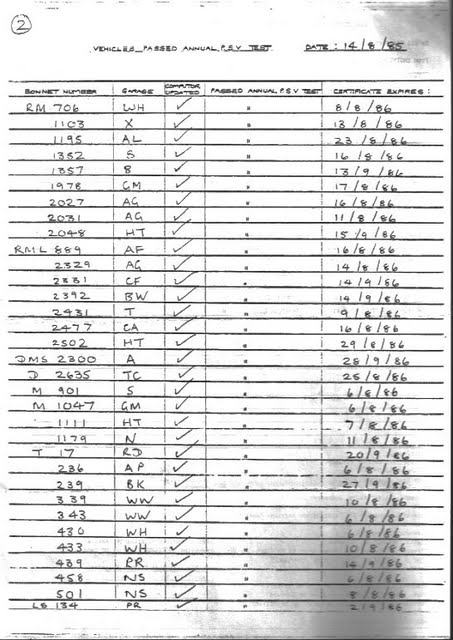 2
VEHICLES PASSED ANNUAL P.S.V TEST DATE: 14/8/85
BONNET NUMBER GARAGE COMPUTOR UPDATED PASSED ANNUAL P.S.V TEST CERTIFICATE EXPIRES:
RM 706 WH ✓ " 8/8/86
1103 X ✓ " 13/8/86
1195 AL ✓ " 23/8/86
1352 S ✓ " 16/8/86
1357 B ✓ " 13/9/86
1978 GM ✓ " 17/8/86
2027 AG ✓ " 16/8/86
2031 AG ✓ " 11/8/86
2048 HT ✓ " 15/9/86
RML 889 AF ✓ " 16/8/86
2329 AG ✓ " 14/8/86
2331 CF ✓ " 14/9/86
2392 BW ✓ " 14/9/86
2431 T ✓ " 9/8/86
2477 CA ✓ " 16/8/86
2502 HT ✓ " 29/8/86
DMS 2300 A ✓ " 28/9/86
D 2635 TC ✓ " 25/8/86
M 901 S ✓ " 6/8/86
M 1047 GM ✓ " 6/8/86
1111 HT ✓ " 7/8/86
1179 N ✓ " 11/8/86
T 17 RD ✓ " 20/9/86
236 AP ✓ " 6/8/86
239 BK ✓ " 27/9/86
339 WW ✓ " 10/8/86
343 WW ✓ " 6/8/86
430 WH ✓ " 6/8/86
433 WH ✓ " 10/8/86
439 PR ✓ " 14/9/86
458 NS ✓ " 6/8/86
501 NS ✓ " 8/8/86
LS 134 PR ✓ " 2/9/86